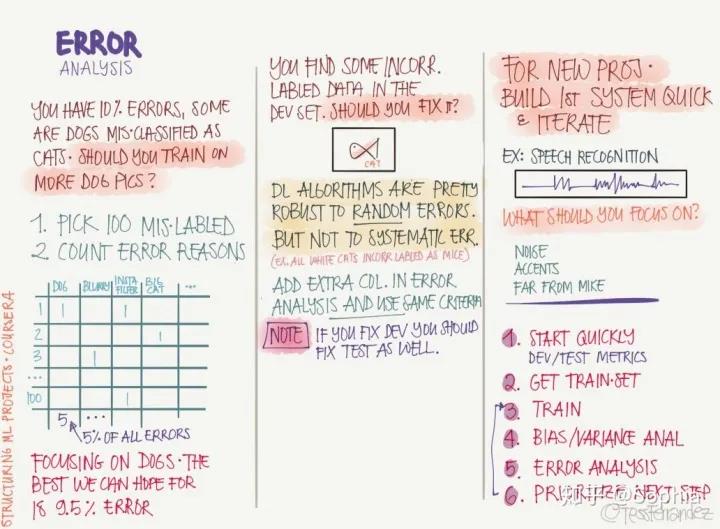 ERROR
ANALYSIS
YOU HAVE 10% ERRORS, SOME
ARE DOGS MIS-CLASSIFIED AS
CATS. SHOULD YOU TRAIN ON
MORE DOG PICS?
1. PICK 100 MIS-LABLED
2. COUNT ERROR REASONS
DOG BLURRY INSTA FILTER BIG CAT ...
1 1 1
2 1
3 1
...
100 1
5 ...
5% OF ALL ERRORS
FOCUSING ON DOGS. THE
BEST WE CAN HOPE FOR
IS 9.5% ERROR
STRUCTURING ML PROJECTS. COURSERA
YOU FIND SOME INCORR.
LABLED DATA IN THE
DEV SET. SHOULD YOU FIX IT?
CAT
DL ALGORITHMS ARE PRETTY
ROBUST TO RANDOM ERRORS.
BUT NOT TO SYSTEMATIC ERR.
(EX. ALL WHITE CATS INCORR LABLED AS MICE)
ADD EXTRA COL. IN ERROR
ANALYSIS AND USE SAME CRITERIA
NOTE IF YOU FIX DEV YOU SHOULD
FIX TEST AS WELL.
FOR NEW PROJ.
BUILD 1st SYSTEM QUICK
& ITERATE
EX: SPEECH RECOGNITION
WHAT SHOULD YOU FOCUS ON?
NOISE
ACCENTS
FAR FROM MIKE
1. START QUICKLY
DEV/TEST METRICS
2. GET TRAIN-SET
3. TRAIN
4. BIAS/VARIANCE ANAL
5. ERROR ANALYSIS
6. PRIORITIZE NEXT STEP
知乎 @Sophia
@TessFerrandez